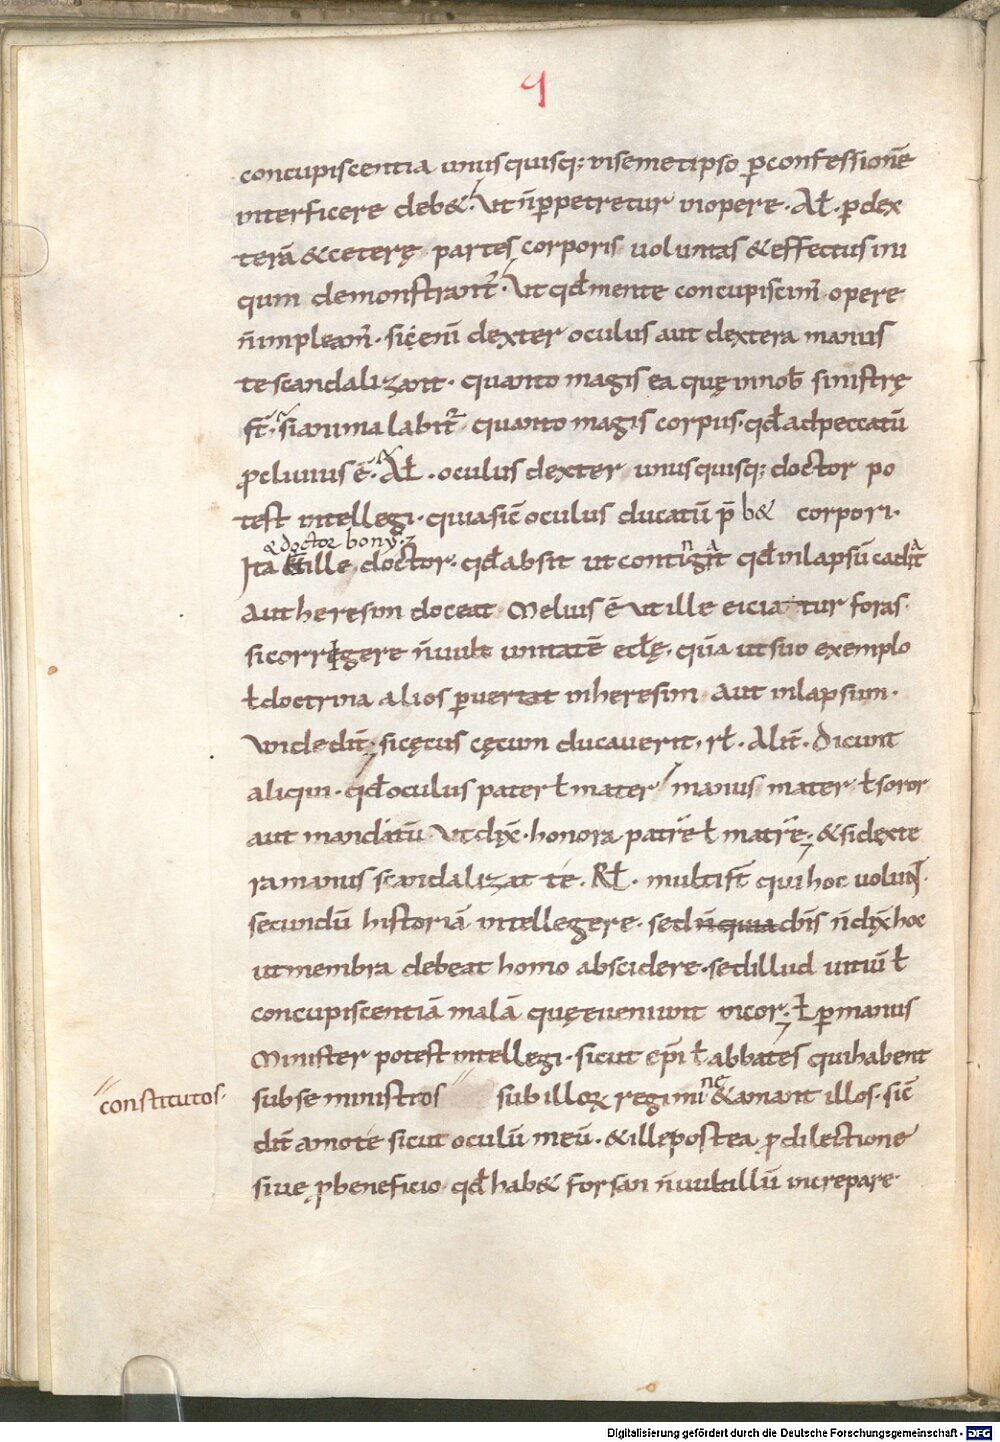 9
concupiscentia unusquisq; insemetipso ꝑconfessionē
interficere deb&. Ut n̄ ꝑpetretur inopere. Ał. ꝑdex
terā &ceterę partes corporis uoluntas &effectus ini
quum demonstrant᷑. Ut qđmente concupiscim᷒ opere
n̄impleam᷒. sic̣ enī dexter oculus aut dextera manus
te scandalizant. quanto magis ea quę innob̄ sinistrę
st̄. si anima labit᷑ quanto magis corpus. qđ adpeccatū
ꝓcliuius ē. Ał. oculus dexter unusquisq; doctor po
test intellegi. quia sic̄ oculus ducatū p̄ b& corpori.
&doctor bony:
Ita ille doctor. qđ absit ut contigerit qđ inlapsū cadit
Aut heresim doceat. Melius ē ut ille eiciatur foras.
si corrigere n̄ uult unitatē ecłę. quā ut suo exemplo
ł doctrina alios ꝑuertat inheresim. aut inlapsum.
Unde dn̄t; si cęcus cęcum ducauerit, rł. Alit̄. Dicunt
aliqui. qđ oculus pater ł mater / manus mater ł soror
aut mandatū ut dix̄. honora patrē ł matrē; &si dexte
ra manus scandalizat te. Rł. multi st̄ qui hoc uolun̄.
secundū historiā intellegere. sed n̄ quia dn̄s n̄ dix̄ hoc
ut membra debeat homo abscidere. sed illud uitiū ł
concupiscentiā malā quę eueniunt incor; ł ꝑ manus
Minister potest intellegi. sicut ep̄i ł abbates qui habent
constitutos.
sub se ministros sub illoꝝ regimine &amant illos. sic̄
dn̄t amo te sicut oculū meū. &ille postea ꝓ dilectione
siue ꝓ beneficio qđ hab& forsan n̄ uult illū increpare